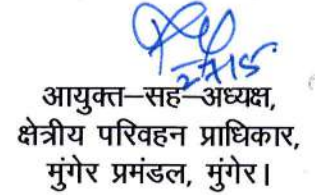 27/5
आयुक्त–सह–अध्यक्ष,
क्षेत्रीय परिवहन प्राधिकार,
मुंगेर प्रमंडल, मुंगेर।